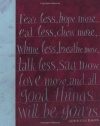 Fear less, hope more,
eat less, chew more,
Whine less, breathe more,
talk less, say more,
Love more, and all
good things
will be yours